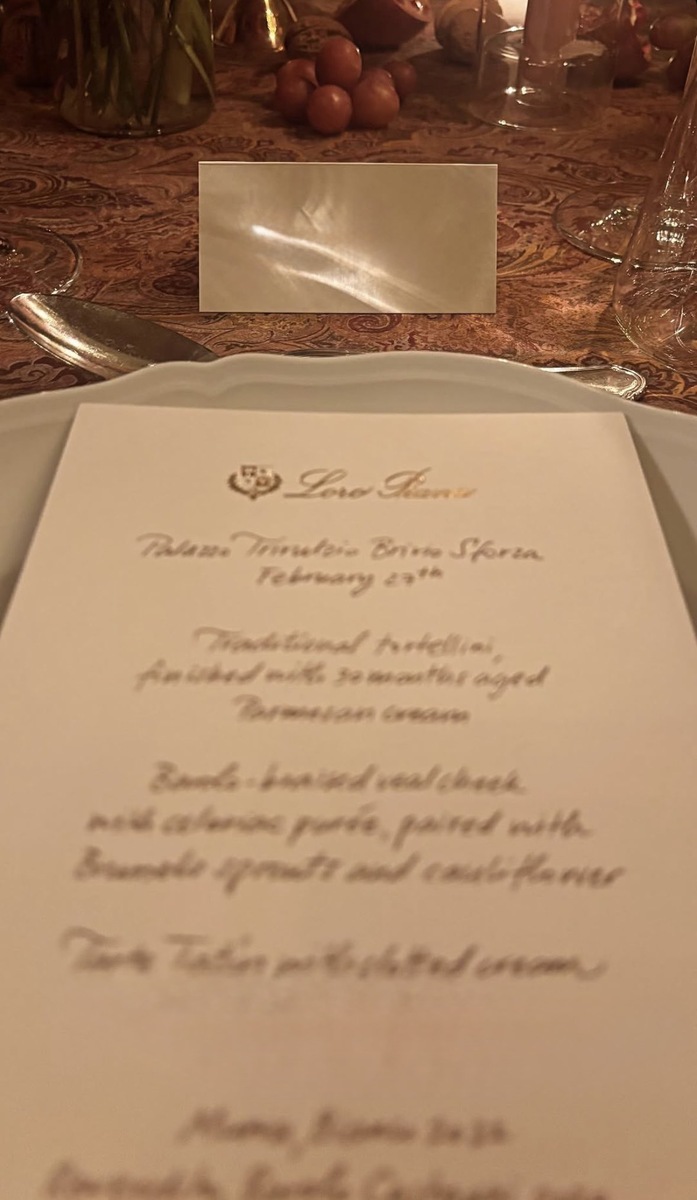 Loro Piana
Palazzo Trivulzio Brivio Sforza
February 27th
Traditional tortellini,
finished with 30 months aged
Parmesan cream
Barolo-braised veal cheek
with celeriac purée, paired with
Brussels sprouts and cauliflower
Tarte Tatin with clotted cream